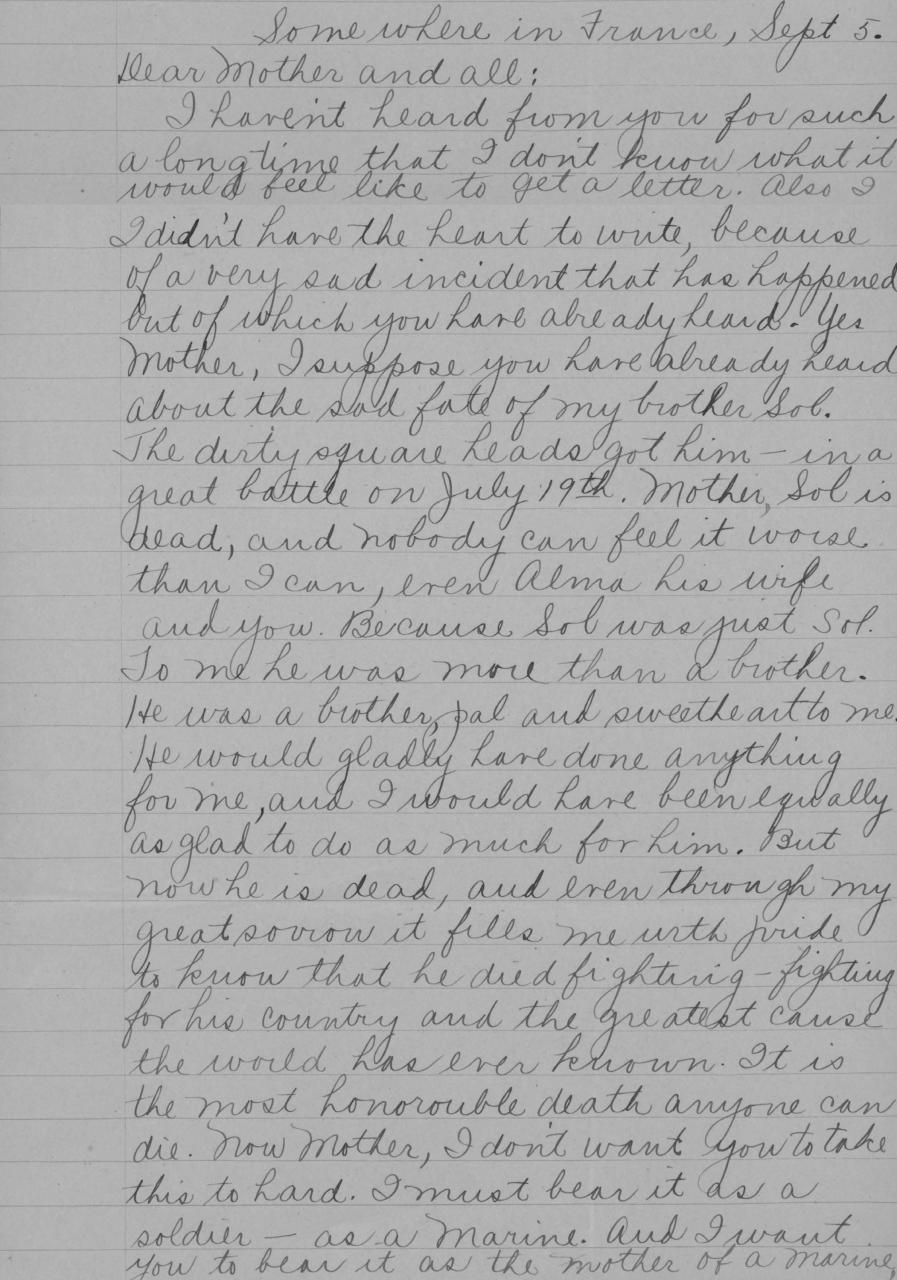 Some where in France, Sept 5.
Dear Mother and all:
I haven't heard from you for such
a long time that I don't know what it
would feel like to get a letter. Also I
I didn't have the heart to write, because
of a very sad incident that has happened
but of which you have already heard. Yes
Mother, I suppose you have already heard
about the sad fate of my brother Sol.
The dirty square heads got him – in a
great battle on July 19th. Mother, Sol is
dead, and nobody can feel it worse
than I can, even Alma his wife
and you. Because Sol was just Sol.
To me he was more than a brother.
He was a brother, pal and sweetheart to me.
He would gladly have done anything
for me, and I would have been equally
as glad to do as much for him. But
now he is dead, and even through my
great sorrow it fills me with pride
to know that he died fighting – fighting
for his country and the greatest cause
the world has ever known. It is
the most honorouble death anyone can
die. Now Mother, I don't want you to take
this to hard. I must bear it as a
soldier – as a Marine. And I want
you to bear it as the mother of a Marine,